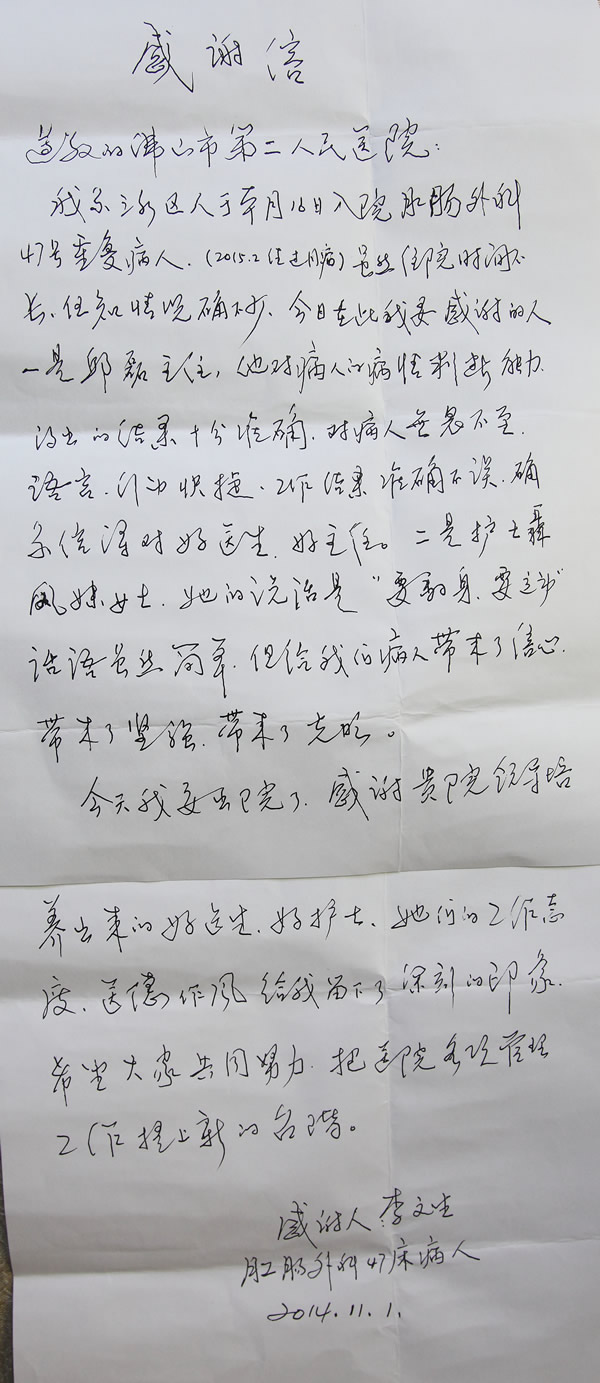 感谢信
尊敬的佛山市第二人民医院:
我系三水区人于本月16日入院肛肠外科
47号重复病人.(2015.2住过用病)虽然住院时间不
长、但知情况确不少、今日在此我要感谢的人
一是邱磊主任,他对病人的病情判断能力.
得出的结果十分准确.对病人无忌不至.
语言.行动快捷、工作结果准确不误.确
系值得对好医生、好主任。二是护士聂
凤妹女士.她的说治是“要翻身、要走动”
话语虽然简单.但给我们病人带来了信心.
带来了坚强.带来了克服。
今天我要出院了.感谢贵院领导培
养出来的好医生、好护士、她们的工作态
度.医德作风给我留下了深刻的印象.
希望大家共同努力.把医院各项管理
工作提上新的台阶。
感谢人 李文生
肛肠外科47床病人
2014.11.1.